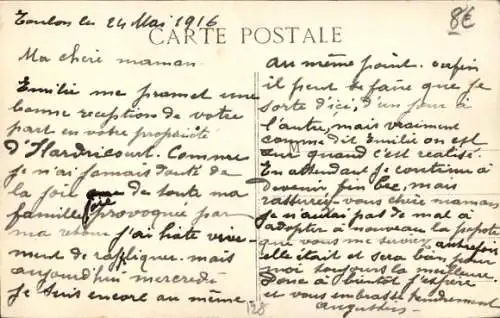 Toulon le 24 Mai 1916
8€
CARTE POSTALE
Ma chère maman
Emilie me promet une
bonne reception de votre
part en votre propriété
d'Hardricourt. Comme
je n'ai jamais douté de
la joie que de toute ma
famille joie provoquée par
ma retour j'ai hâte vive-
ment de rappliquer mais
aujourd'hui mercredi
je suis encore au même
au même point. enfin
il peut se faire que je
sorte d'ici, d'un jour à
l'autre, mais vraiment
comme dit Emilie on est
sur quand c'est réalisé.
En attendant je continue à
devenir fin bec, mais
rassurez vous chère maman
je n'aurai pas de mal à
adopter à nouveau la popote
que vous me serviez autrefois
elle était et sera bien pour
moi toujours la meilleure
Donc à bientôt j'espère
et vous embrasse tendrement
128